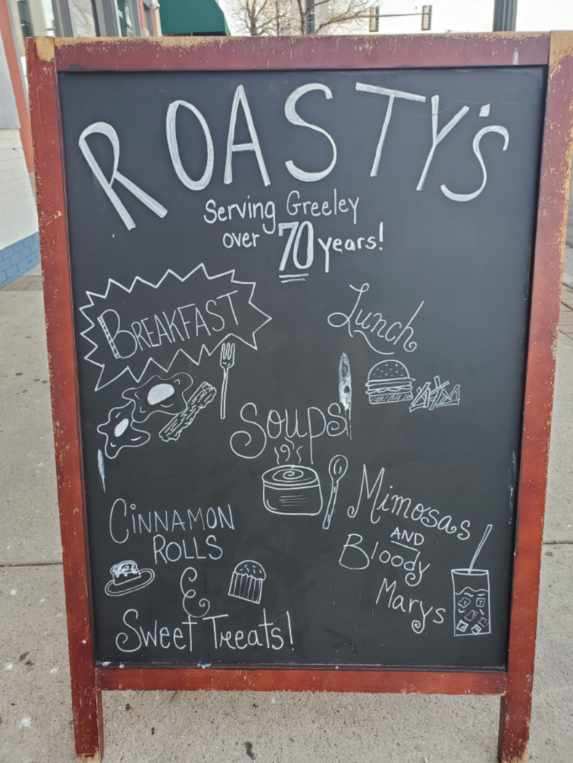 ROASTY'S
Serving Greeley
over 70 years!
BREAKFAST
Lunch
Soups
CINNAMON
ROLLS
&
Sweet Treats!
Mimosas
AND
Bloody
Marys